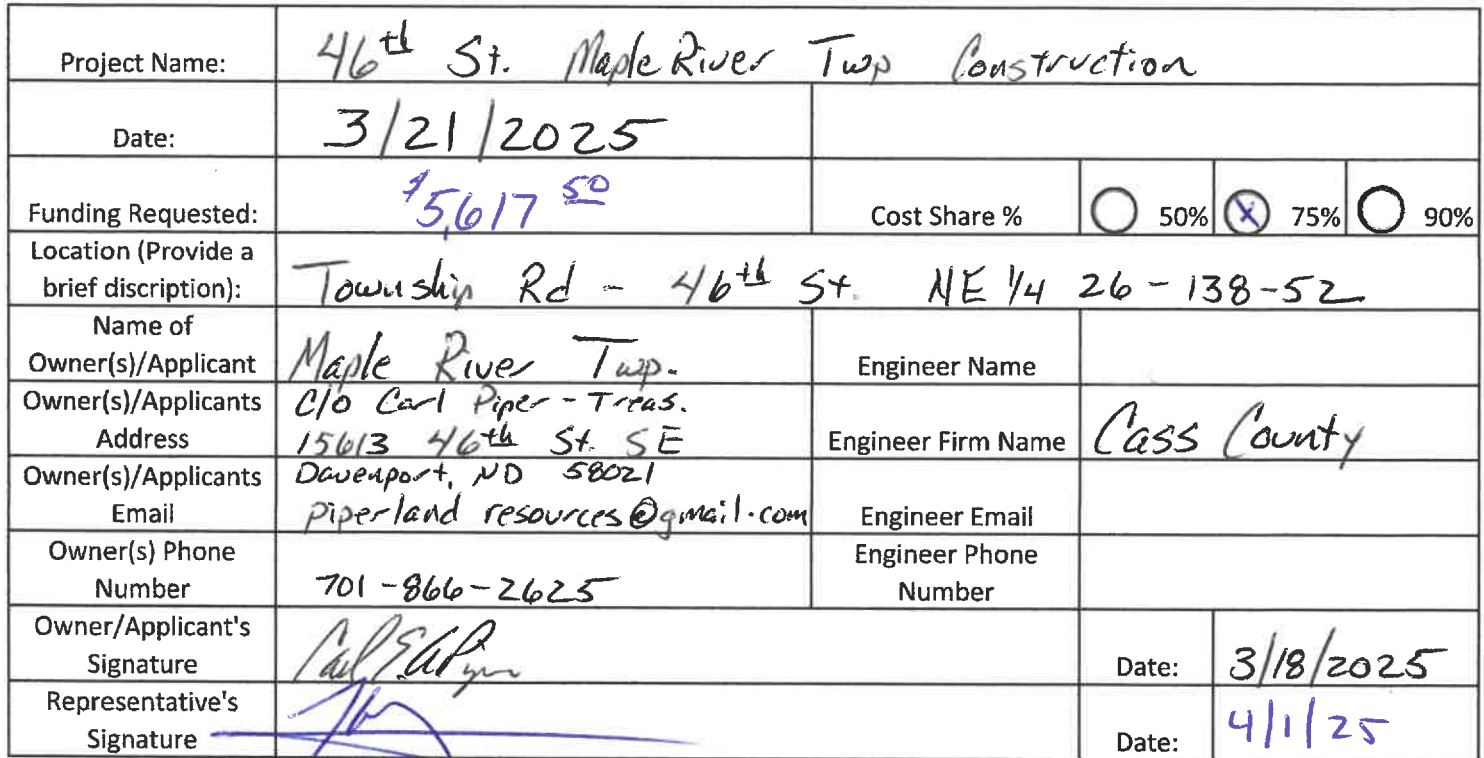 Project Name: 46th St. Maple River Twp Construction
Date: 3/21/2025
Funding Requested: $5,617 50 Cost Share % 50% X 75% 90%
Location (Provide a
brief discription): Township Rd - 46th St. NE 1/4 26-138-52
Name of
Owner(s)/Applicant Maple River Twp. Engineer Name
Owner(s)/Applicants C/o Carl Piper - Treas.
Address 15613 46th St. SE Engineer Firm Name Cass County
Owner(s)/Applicants Davenport, ND 58021
Email piperland resources@gmail.com Engineer Email
Owner(s) Phone Engineer Phone
Number 701-866-2625 Number
Owner/Applicant's
Signature Date: 3/18/2025
Representative's
Signature Date: 4/1/25